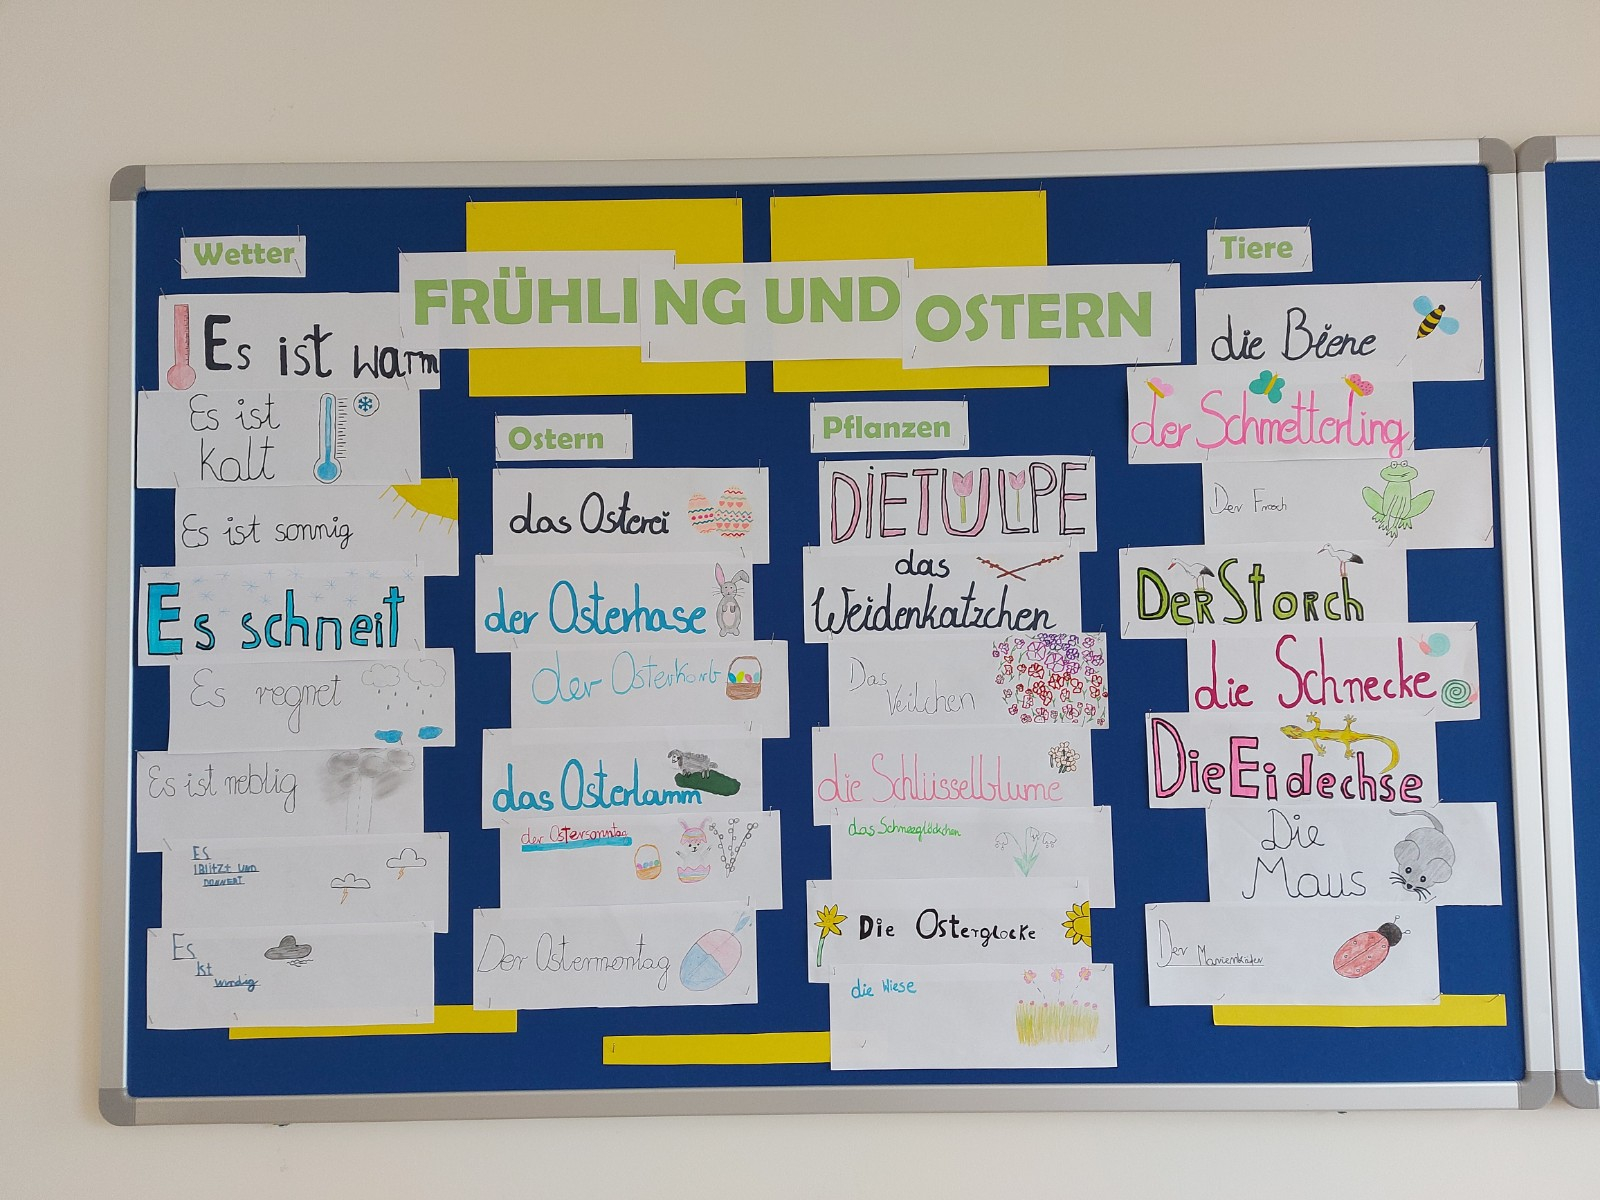 FRÜHLING UND OSTERN
Wetter
Es ist warm
Es ist
kalt
Es ist sonnig
Es schneit
Es regnet
Es ist neblig
ES
BLITZT UND
DONNERT
Es
ist
windig
Ostern
das Osterei
der Osterhase
der Osterkorb
das Osterlamm
der Ostersonntag
Der Ostermontag
Pflanzen
DIE TULPE
das
Weidenkatzchen
Das
Veilchen
die Schlüsselblume
das Schneeglöckchen
Die Osterglocke
die Wiese
Tiere
die Biene
der Schmetterling
Der Frosch
DER STORCH
die Schnecke
Die Eidechse
Die
Maus
Der Marienkäfer